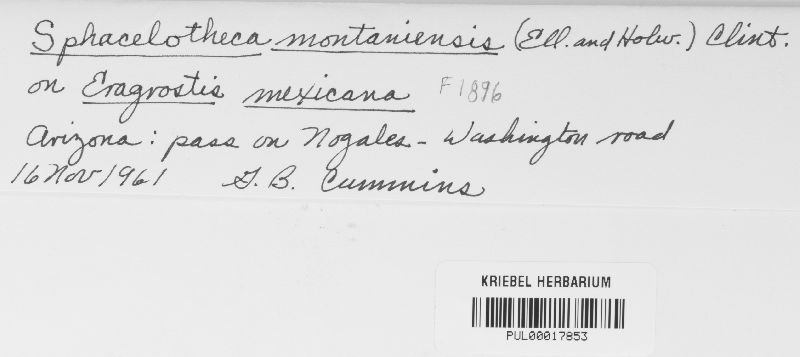 Sphacelotheca montaniensis (Ell. and Holw.) Clint.
on Eragrostis mexicana F1896
Arizona: pass on Nogales - Washington road
16 Nov 1961 G. B. Cummins
KRIEBEL HERBARIUM
PUL00017853